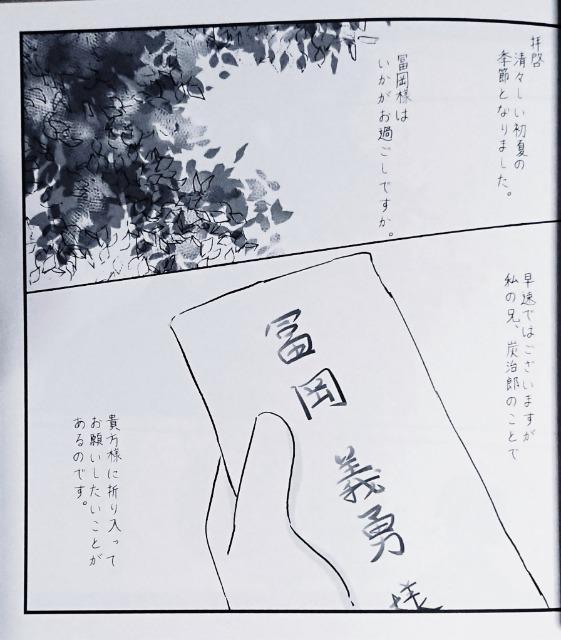 拝啓
清々しい初夏の
季節となりました。
冨岡様は
いかがお過ごしですか。
早速ではございますが
私の兄、炭治郎のことで
冨岡
義勇
様
貴方様に折り入って
お願いしたいことが
あるのです。